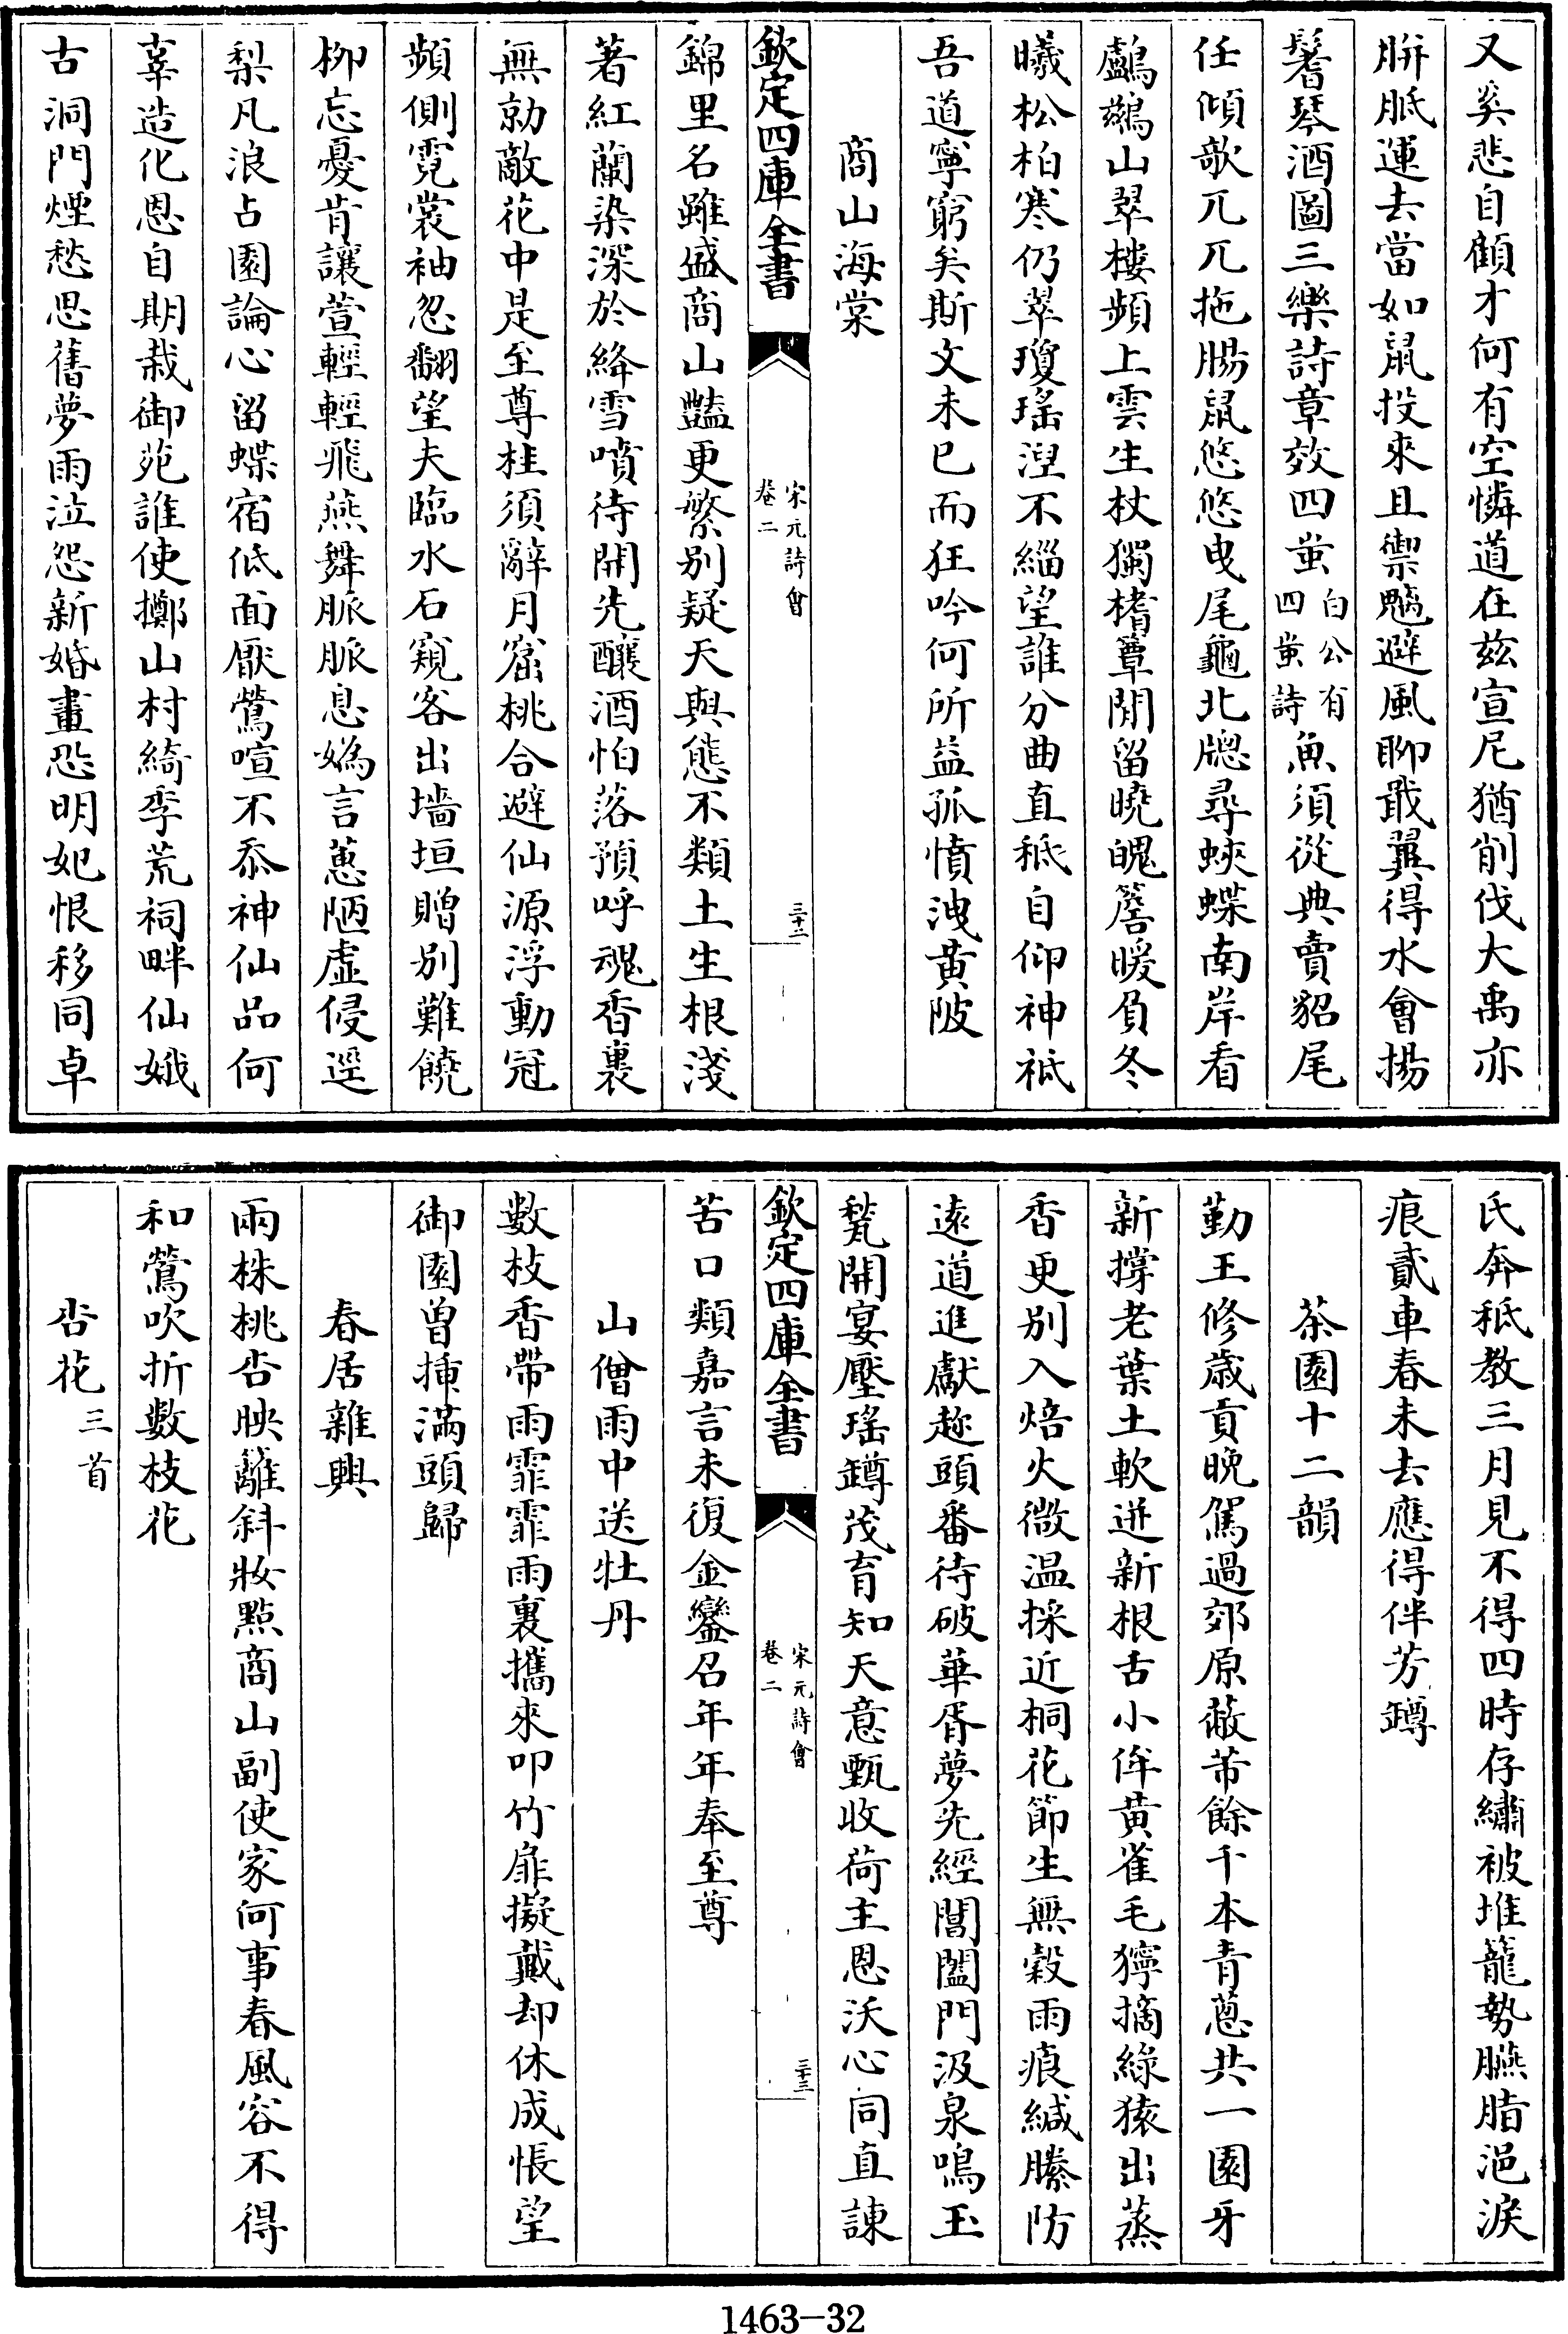 又奚悲自顧才何有空憐道在兹宣尼猶削伐大禹亦
胼胝運去當如鼠投來且禦魑避風聊戢翼得水會揚
鬐琴酒圖三樂詩章效四蚩白公有四蚩詩魚須從典賣貂尾
任傾欹兀兀拖腸鼠悠悠曳尾龜北牕尋蛺蝶南岸看
鸕鷀山翠樓頻上雲生杖獨榰簟閒留曉魄簷暖負冬
曦松柏寒仍翠瓊瑤涅不緇望誰分曲直秪自仰神祇
吾道寧窮矣斯文未已而狂吟何所益孤憤洩黄陂
商山海棠
欽定四庫全書
宋元詩會
卷二
三十二
錦里名雖盛商山豔更繁别疑天與態不類土生根淺
著紅蘭染深於絳雪噴待開先釀酒怕落預呼魂香裏
無勍敵花中是至尊桂須辭月窟桃合避仙源浮動冠
頻側霓裳袖忽翻望夫臨水石窺客出墻垣贈别難饒
柳忘憂肯讓萱輕輕飛燕舞脈脈息嬀言蕙陋虛侵逕
梨凡浪占園論心留蝶宿低面厭鶯喧不忝神仙品何
辜造化恩自期栽御苑誰使擲山村綺季荒祠畔仙娥
古洞門煙愁思舊夢雨泣怨新婚畫恐明妃恨移同卓
氏奔秪教三月見不得四時存繡被堆籠勢臙脂浥淚
痕貳車春未去應得伴芳罇
茶園十二韻
勤王修歲貢晚駕過郊原蔽芾餘千本青葱共一園牙
新撑老葉土軟迸新根舌小侔黄雀毛獰摘綠猿出蒸
香更别入焙火微温採近桐花節生無穀雨痕緘縢防
遠道進獻趂頭番待破華胥夢先經閶闔門汲泉鳴玉
甃開宴壓瑤罇茂育知天意甄收荷主恩沃心同直諫
欽定四庫全書
宋元詩會
卷二
三十三
苦口類嘉言未復金鑾召年年奉至尊
山僧雨中送牡丹
數枝香帶雨霏霏雨裏攜來叩竹扉擬戴却休成悵望
御園曾揷滿頭歸
春居雜興
兩株桃杏映籬斜妝點商山副使家何事春風容不得
和鶯吹折數枝花
杏花三首
1463-32